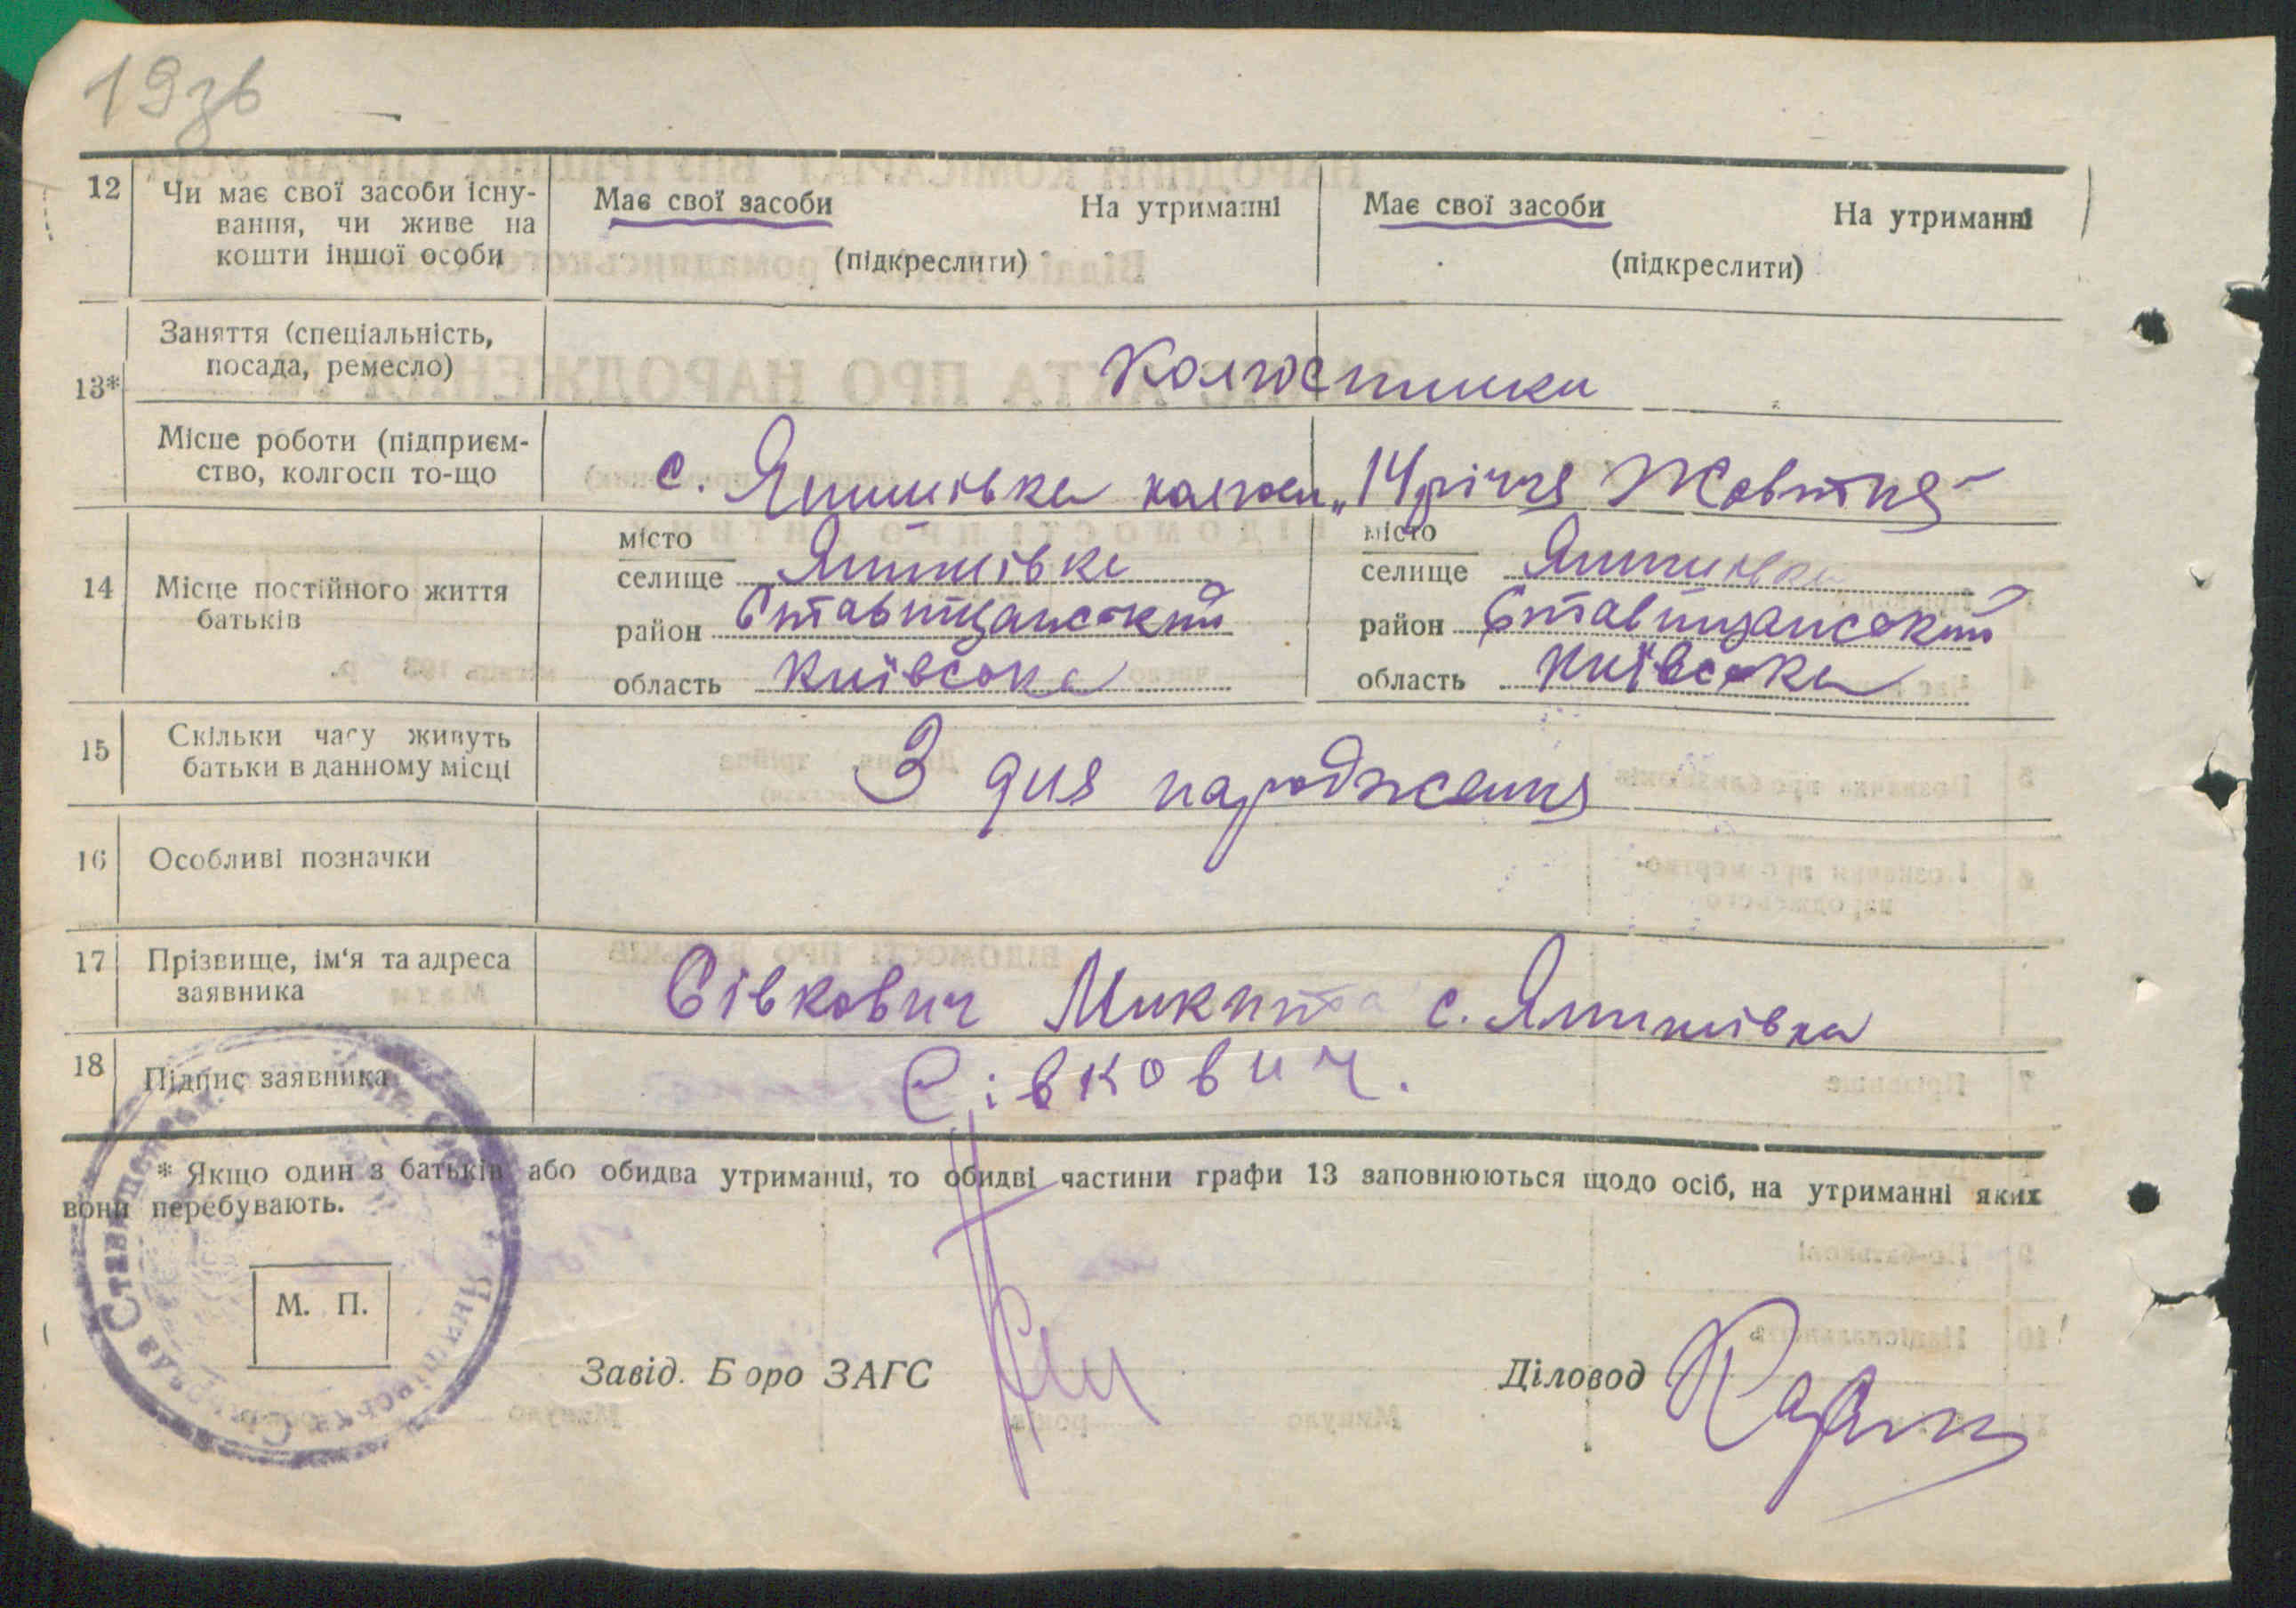 19зв
12 Чи має свої засоби існу-
вання, чи живе на
кошти іншої особи
Має свої засоби На утриманні
(підкреслити)
Має свої засоби На утриманні
(підкреслити)
13* Заняття (спеціальність,
посада, ремесло)
колгоспники
Місце роботи (підприєм-
ство, колгосп то-що
с. Янишівка колгосп „14 річчя Жовтня
14 Місце постійного життя
батьків
місто
селище Янишівка
район Ставищанський
область Київська
місто
селище Янишівка
район Ставищанський
область Київська
15 Скільки часу живуть
батьки в данному місці
З дня народження
16 Особливі позначки
17 Прізвище, ім‘я та адреса
заявника
Сівкович Микита с. Янишівка
18 Підпис заявника
Сівкович.
* Якщо один з батьків або обидва утриманці, то обидві частини графи 13 заповнюються щодо осіб, на утриманні яких
вони перебувають.
М. П.
Завід. Б оро ЗАГС
Діловод